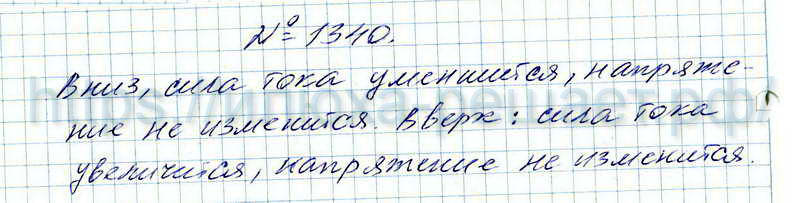 № 1340.
Вниз, сила тока уменшится, напряже-
ние не изменится. Вверх: сила тока
увеличится, напряжение не изменится.